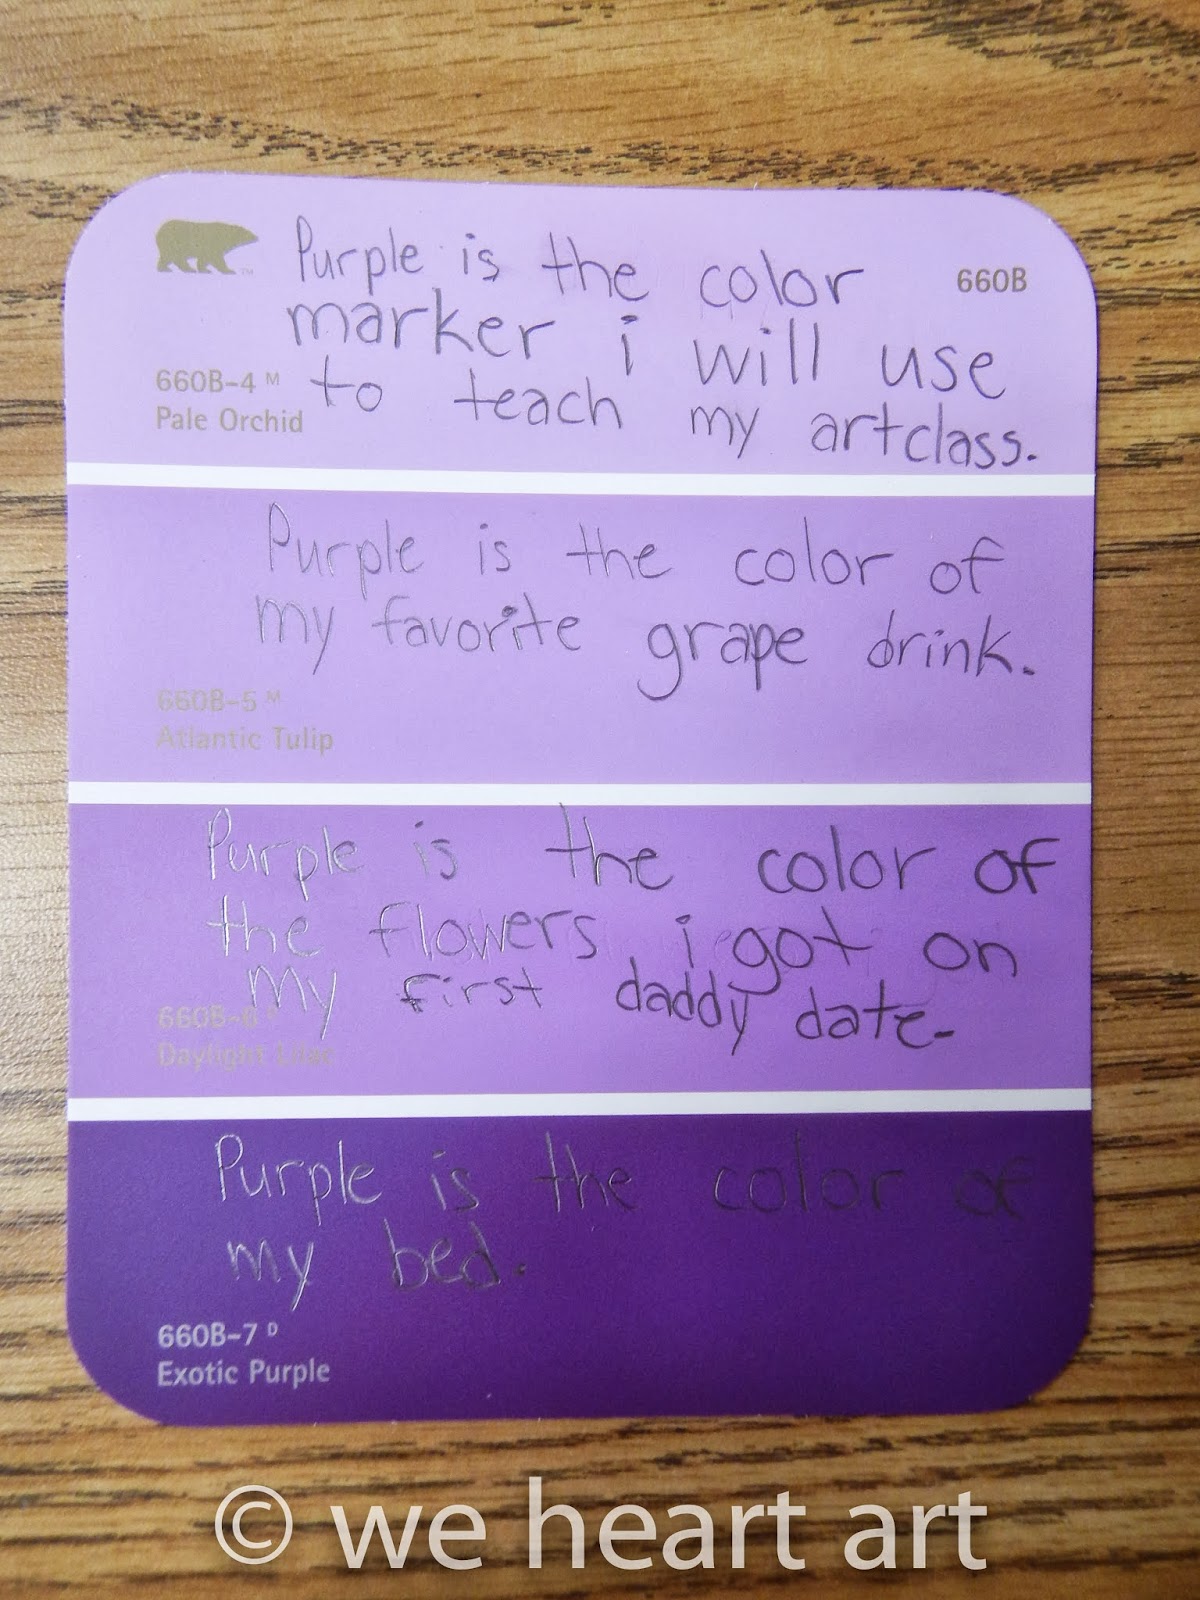 Purple is the color
660B
marker i will use
660B-4 M
to teach my artclass.
Pale Orchid
Purple is the color of
my favorite grape drink.
660B-5 M
Atlantic Tulip
Purple is the color of
the flowers i got on
my first daddy date.
660B-6 D
Daylight Lilac
Purple is the color of
my bed.
660B-7 D
Exotic Purple
© we heart art